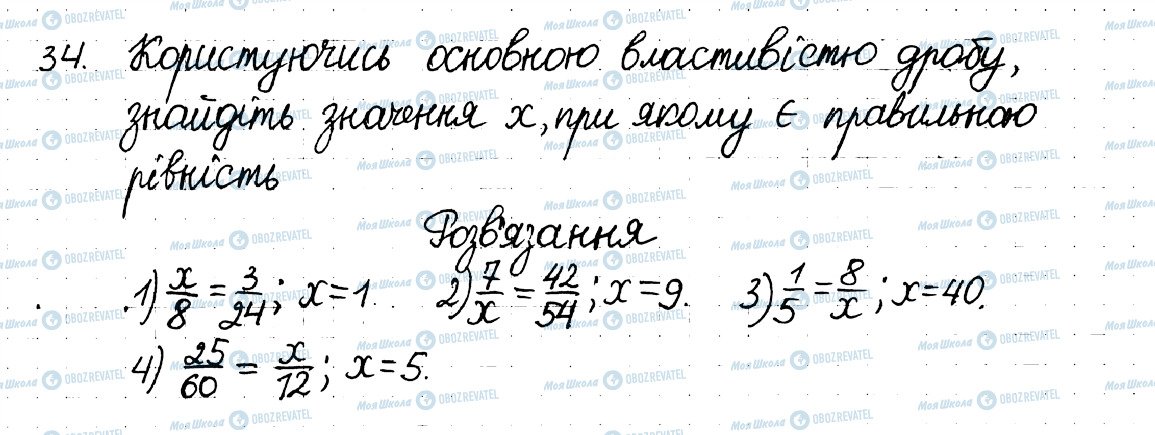 34. Користуючись основною властивістю дробу,
знайдіть значення x, при якому є правильною
рівність
Розв'язання
1) x/8 = 3/24; x=1. 2) 7/x = 42/54; x=9. 3) 1/5 = 8/x; x=40.
4) 25/60 = x/12; x=5.